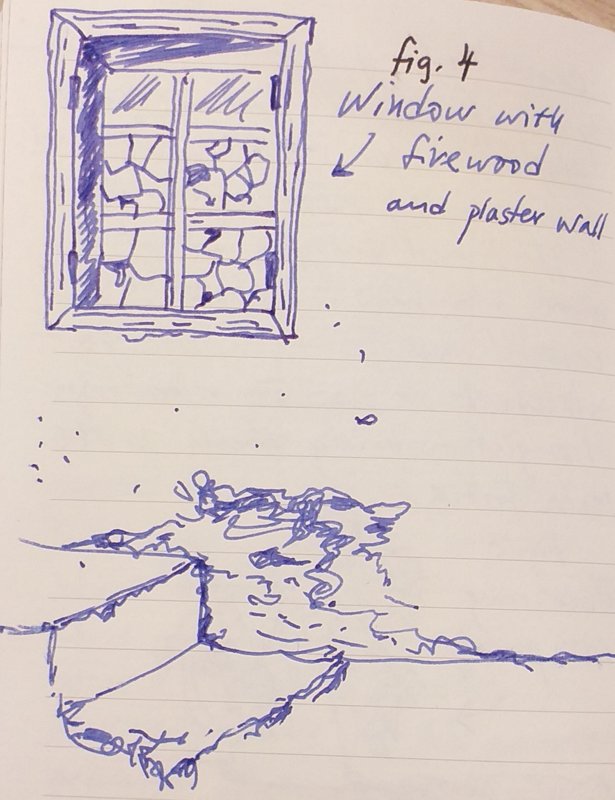 fig. 4
Window with
firewood
and plaster wall